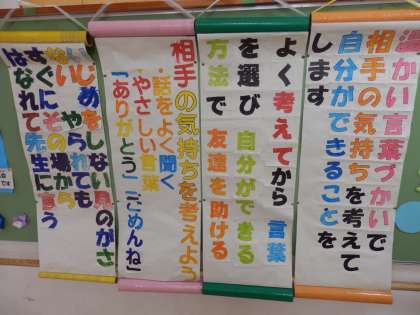 温かい言葉づかいで
相手の気持ちを考えて
自分ができることを
します
よく考えてから 言葉
を選び 自分ができる
方法で 友達を助ける
相手の気持ちを考えよう
・話をよく聞く
・やさしい言葉
「ありがとう」「ごめんね」
いじめをしない見のがさ
ない やられても
すぐにその場から
はなれて先生に言う